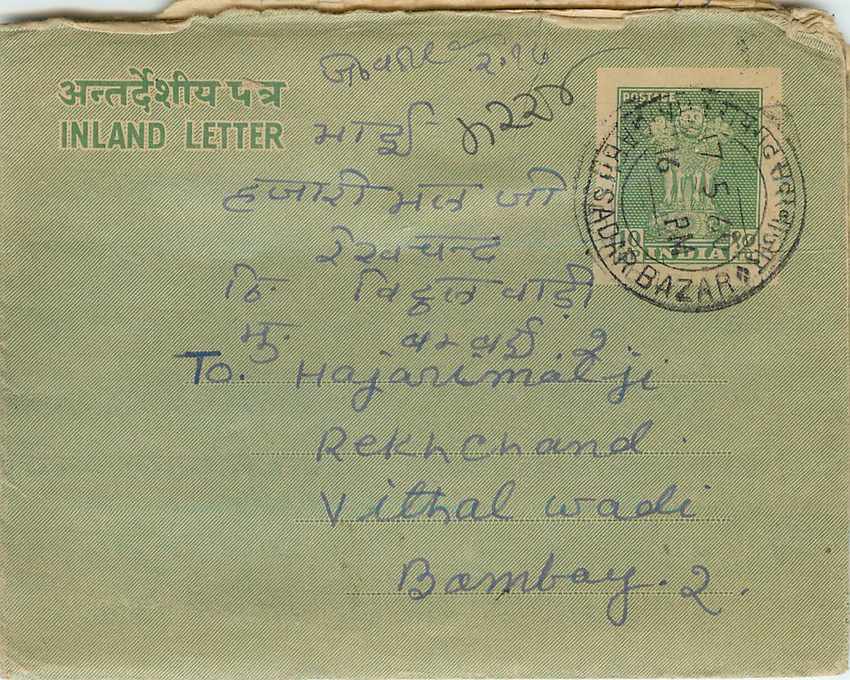 अन्तर्देशीय पत्र
INLAND LETTER
भाई
हजारी मल जी
रेखचन्द
ठि. विट्ठल वाड़ी
मु. बम्बई 2
To. Hajarimal ji
Rekhchand.
Vithal wadi
Bombay. 2.
POSTAGE
INDIA
17 5 6
16 PM
SADAR BAZAR